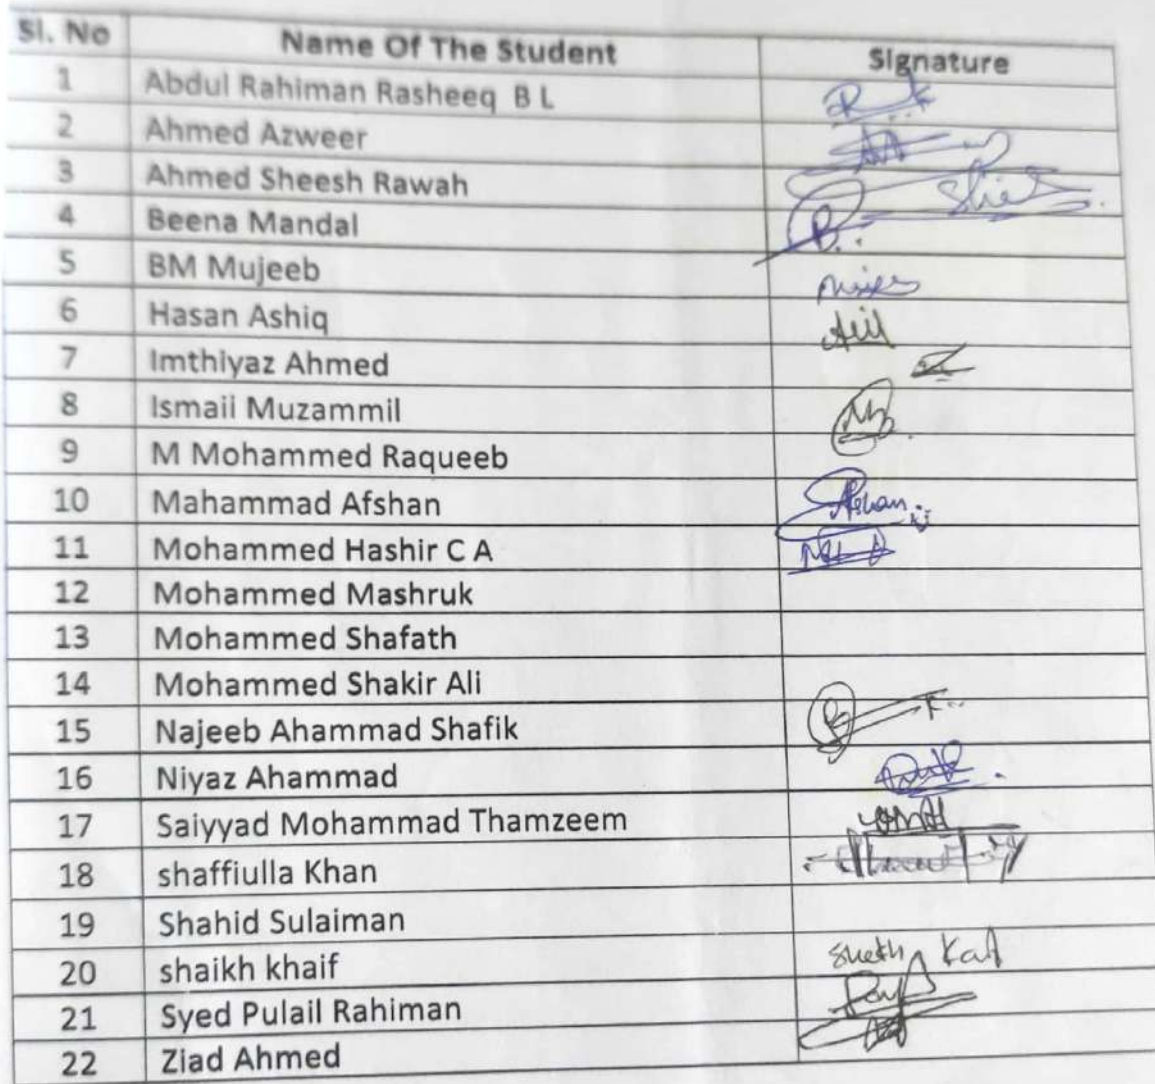 Sl. No Name Of The Student Signature
1 Abdul Rahiman Rasheeq B L
2 Ahmed Azweer
3 Ahmed Sheesh Rawah
4 Beena Mandal
5 BM Mujeeb
6 Hasan Ashiq
7 Imthiyaz Ahmed
8 Ismail Muzammil
9 M Mohammed Raqueeb
10 Mahammad Afshan
11 Mohammed Hashir C A
12 Mohammed Mashruk
13 Mohammed Shafath
14 Mohammed Shakir Ali
15 Najeeb Ahammad Shafik
16 Niyaz Ahammad
17 Saiyyad Mohammad Thamzeem
18 shaffiulla Khan
19 Shahid Sulaiman
20 shaikh khaif
21 Syed Pulail Rahiman
22 Ziad Ahmed